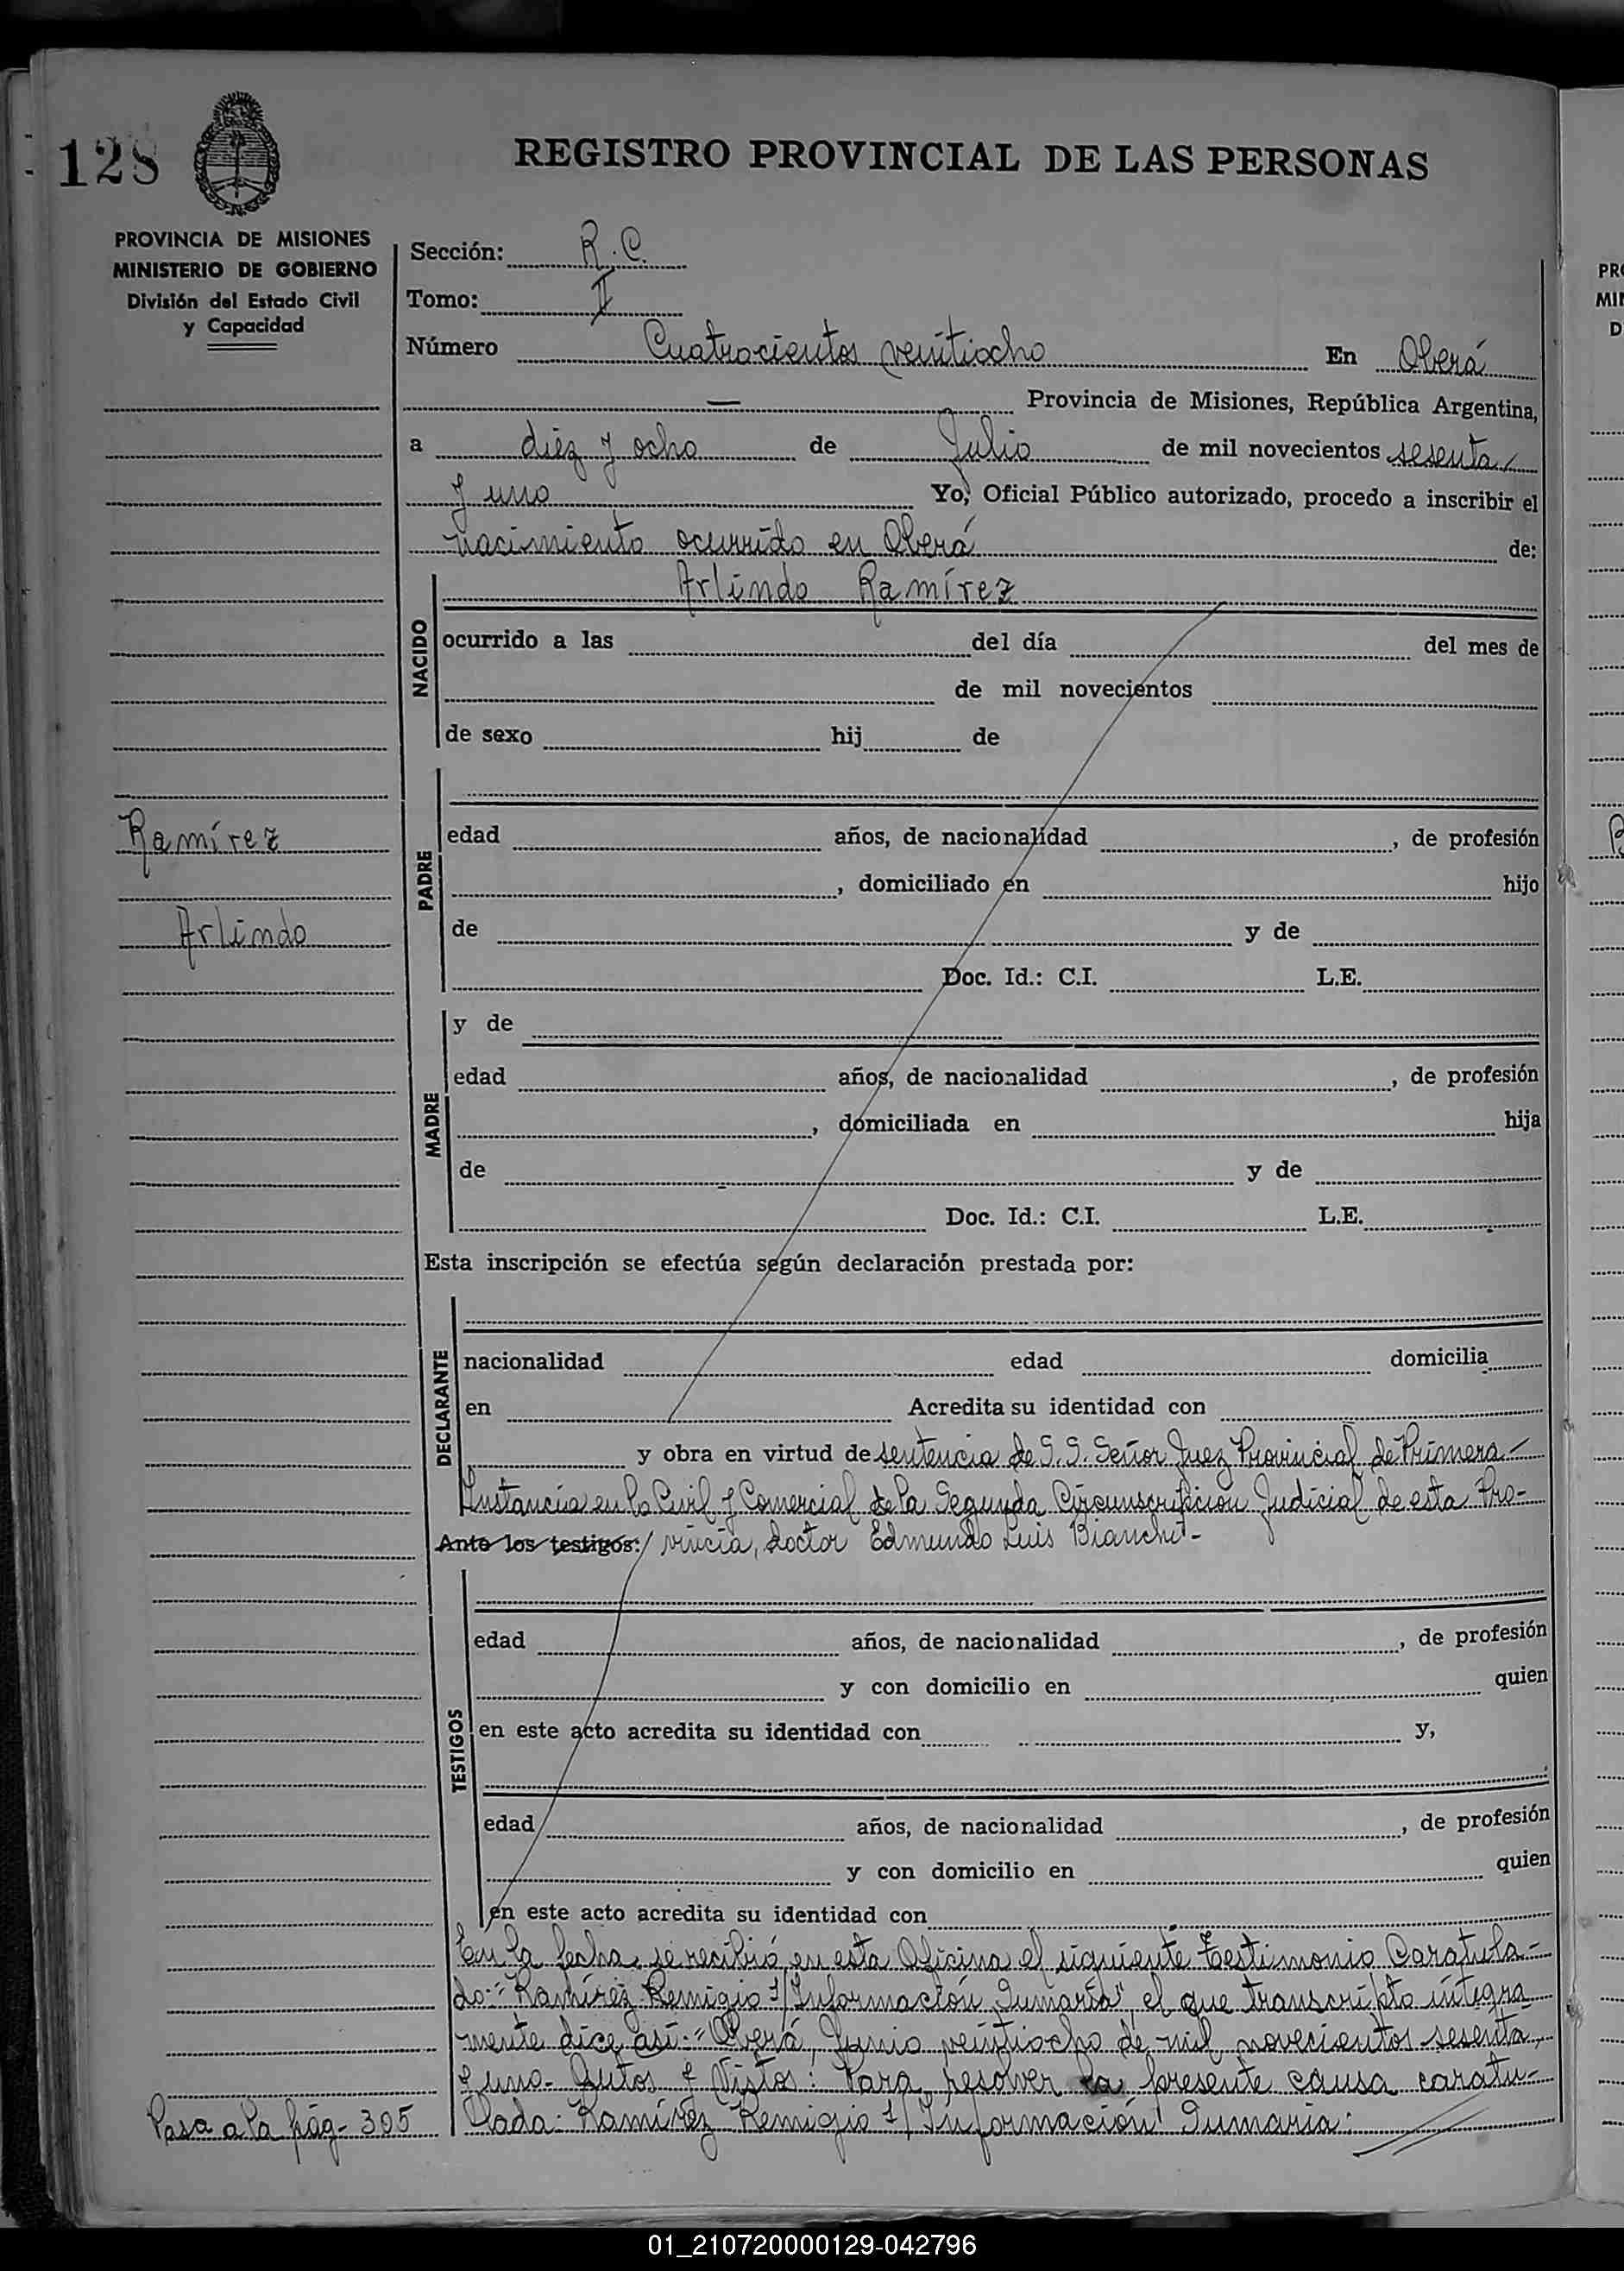 128
REGISTRO PROVINCIAL DE LAS PERSONAS
PROVINCIA DE MISIONES
MINISTERIO DE GOBIERNO
División del Estado Civil
y Capacidad
Sección: R.C.
Tomo: II
Número Cuatrocientos veintiocho En Oberá
— Provincia de Misiones, República Argentina,
a diez y ocho de Julio de mil novecientos sesenta
y uno Yo, Oficial Público autorizado, procedo a inscribir el
nacimiento ocurrido en Oberá de:
Arlindo Ramírez
NACIDO
ocurrido a las del día del mes de
de mil novecientos
de sexo hij de
Ramírez
Arlindo
PADRE
edad años, de nacionalidad , de profesión
, domiciliado en hijo
de y de
Doc. Id.: C.I. L.E.
MADRE
y de
edad años, de nacionalidad , de profesión
, domiciliada en hija
de y de
Doc. Id.: C.I. L.E.
Esta inscripción se efectúa según declaración prestada por:
DECLARANTE
nacionalidad edad domicilia
en Acredita su identidad con
y obra en virtud de sentencia de S.S. Señor Juez Provincial de Primera-
Instancia en lo Civil y Comercial de la Segunda Circunscripción Judicial de esta Pro-
Ante los testigos: / vincia, doctor Edmundo Luis Bianchi-
TESTIGOS
edad años, de nacionalidad , de profesión
y con domicilio en quien
en este acto acredita su identidad con y,
edad años, de nacionalidad , de profesión
y con domicilio en quien
en este acto acredita su identidad con
En la fecha, se recibió en esta Oficina el siguiente Testimonio Caratula-
do:-"Ramírez Remigio s/Información Sumaria", el que transcripto íntegra
mente dice así:-"Oberá, Junio veintiocho de mil novecientos sesenta
y uno- Autos y Vistos: Para resolver la presente causa caratu-
lada: Ramírez Remigio s/Información Sumaria:
Pasa a la pág- 305
PR
MI
D
01_210720000129-042796